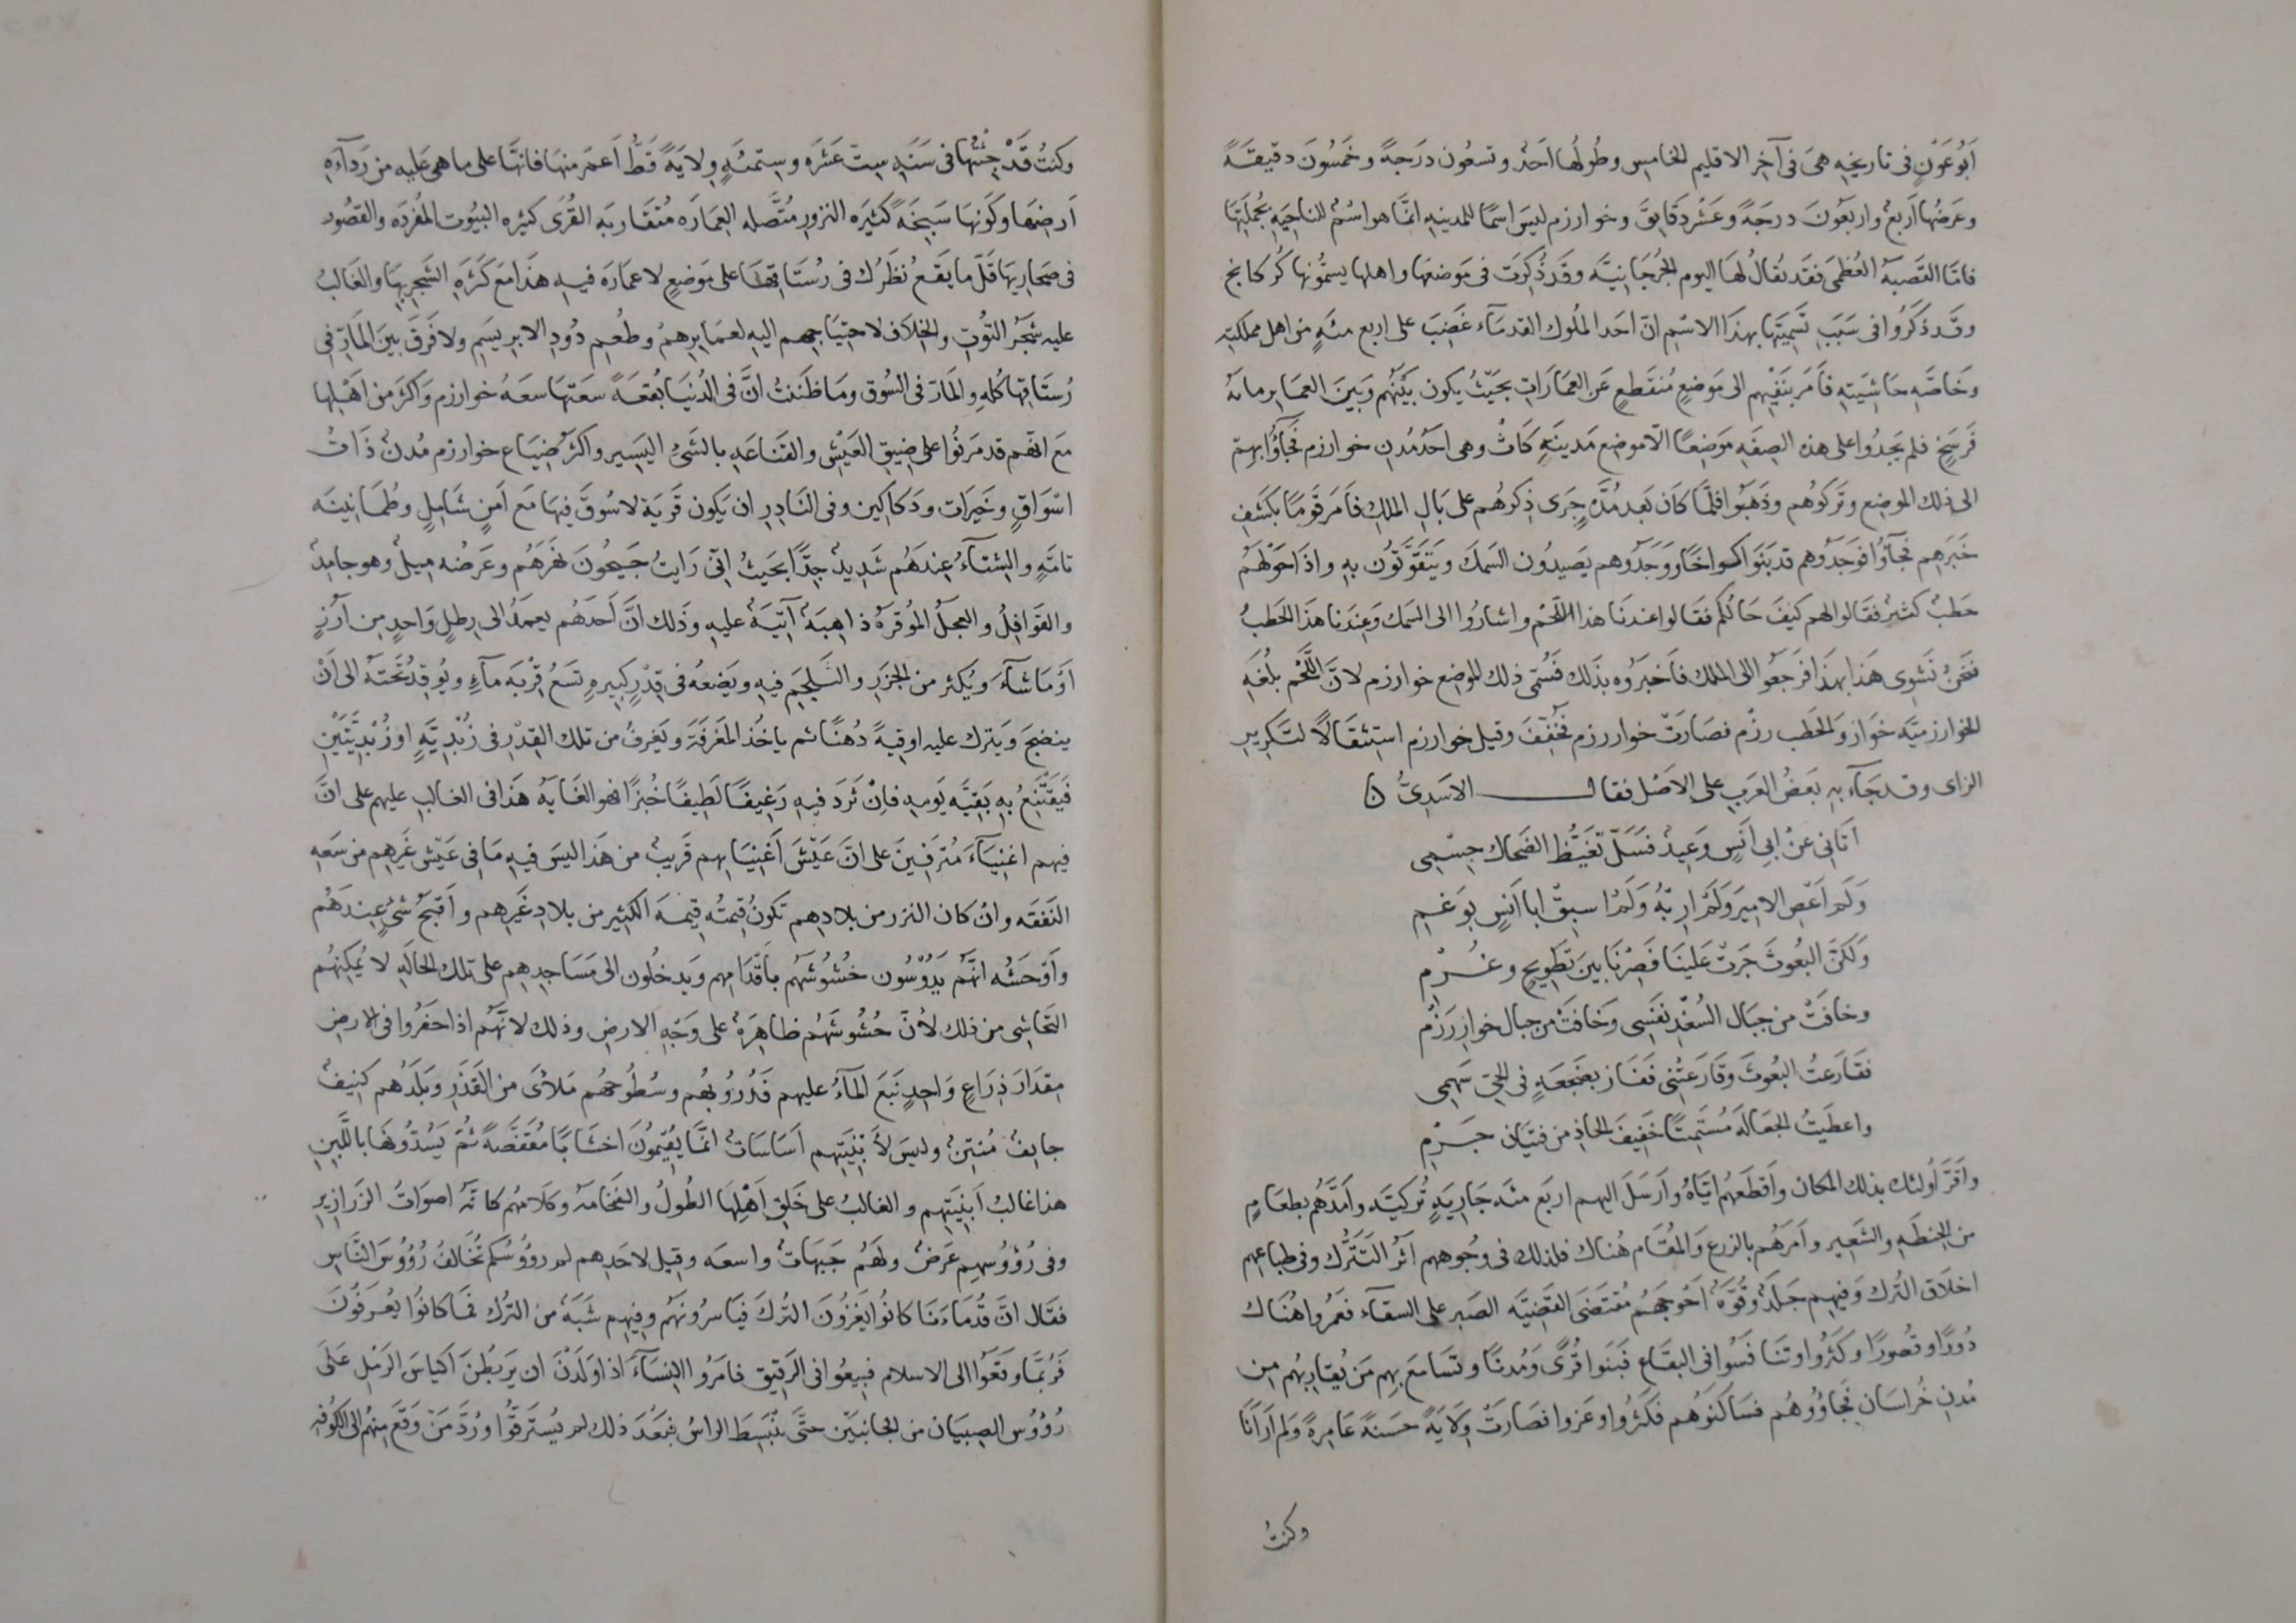 أبو عون في تاريخه هي في آخر الاقليم الخامس وطولها احد وتسعون درجة وخمسون دقيقة
وعرضها اربع واربعون درجة وعشر دقايق وخوارزم ليس اسما للمدينه انما هو اسم للناحيه بجملتها
فاما القصبه العظمى فقد يقال لها اليوم الجرجانيه وقد ذكرت في موضعها واهلها يسمونها كركانج
وقد ذكروا في سبب تسميتها بهذا الاسم ان احد الملوك القدماء غضب على اربع مئه من اهل مملكته
وخاصه حاشيته فامر بنفيهم الى موضع منقطع عن العمارات بحيث يكون بينهم وبين العماير مائه
فرسخ فلم يجدوا على هذه الصفه موضعا الا موضع مدينه كاث وهي احد مدن خوارزم فجاؤا بهم
الى ذلك الموضع وتركوهم وذهبوا فلما كان بعد مده جرى ذكرهم على بال الملك فامر قوما بكشف
خبرهم فجاؤا فوجدوهم قد بنوا اكواخا ووجدوهم يصيدون السمك ويتقوتون به واذا حولهم
حطب كثير فقالوا لهم كيف حالكم فقالوا عندنا هذا اللحم واشاروا الى السمك وعندنا هذا الحطب
فنحن نشوي هذا بهذا فرجعوا الى الملك فاخبروه بذلك فسمى ذلك الموضع خوارزم لان اللحم بلغه
الخوارزميه خوار والحطب رزم فصارت خواررزم فخفف وقيل خوارزم استثقالا لتكرير
الراى وقد جاء به بعض العرب على الاصل فقال الاسدي ن
اتاني عن ابي انس وعيد فسل تغيظ الضحاك جسمي
ولم اعص الامير ولم اربه ولم اسبق ابا انس بوغم
ولكن البعوث جرت علينا فصرنا بين تطويح وغرم
وخافت من جبال السغد نفسي وخافت من جبال خواررزم
فقارعت البعوث وقارعتني ففاز بضجعه في الحي سهمي
واعطيت الجعاله مستميتا خفيف الحاذ من فتيان جرم
واقر أولئك بذلك المكان واقطعهم اياه وارسل اليهم اربع مئه جاريه تركيه وامدهم بطعام
من الحنطه والشعير وامرهم بالزرع والمقام هناك فلذلك في وجوههم اثر الترك وفي طباعهم
اخلاق الترك وفيهم جلد وقوه احوجهم مقتضى القضيه الصبر على الشقاء فعمروا هناك
دورا وقصورا وكثروا وتنافسوا في البقاع فبنوا قرى ومدنا وتسامع بهم من يقاربهم من
مدن خراسان فجاؤوهم فساكنوهم فكثروا وعزوا فصارت ولاية حسنة عامرة ولم ار انا
وكنت
وكنت قد جئتها في سنه ست عشره وستمئه ولاية قط اعمر منها فانها على ما هي عليه من رداءه
ارضها وكونها سبخة كثيره النزور متصله العماره متقاربه القرى كثيره البيوت المفرده والقصور
في صحاريها قل ما يقع نظرك في رستاقها على موضع لا عماره فيه هذا مع كثره الشجر بها والغالب
عليه شجر التوت والخلاف لاحتياجهم اليه لعمايرهم وطعم دود الابريسم ولا فرق بين المار في
رستاقها كله والمار في السوق وما ظننت ان في الدنيا بقعة سعتها سعه خوارزم واكثر من اهلها
مع انهم قد مرنوا على ضيق العيش والقناعه بالشئ اليسير واكثر ضياع خوارزم مدن ذات
اسواق وخيرات ودكاكين وفي النادر ان يكون قرية لا سوق فيها مع امن شامل وطمانينه
تامه والشتاء عندهم شديد جدا بحيث اني رايت جيحون نهرهم وعرضه ميل وهو جامد
والقوافل والعجل الموقره ذاهبة آتية عليه وذلك ان احدهم يعمد الى رطل واحد من ارز
او ما شاء ويكثر من الجزر والشليجم فيه ويضعه في قدر كبيره تسع قربه ماء ويوقد تحته الى ان
ينضج ويترك عليه اوقية دهنا ثم ياخذ المغرفة ويغرف من تلك القدر في زبديه او زبديتين
فيقتنع به بقيه يومه فان ثرد فيه رغيفا لطيفا خبزا فهو الغايه هذا في الغالب عليهم على ان
فيهم اغنياء مترفين على ان عيش اغنيايهم قريب من هذا ليس فيه ما في عيش غيرهم من سعه
النفقه وان كان النزر من بلادهم تكون قيمته قيمه الكثير من بلاد غيرهم واقبح شئ عندهم
واوحشه انهم يدوسون حشوشهم باقدامهم ويدخلون الى مساجدهم على تلك الحاله لا يمكنهم
التحاشي من ذلك لأن حشوشهم ظاهرة على وجه الارض وذلك لانهم اذا حفروا في الارض
مقدار ذراع واحد نبع الماء عليهم فدروبهم وسطوحهم ملأى من القذر وبلدهم كنيف
جايف منتن وليس لأبنيتهم اساسات انما يقيمون اخشابا مقفصة ثم يسدونها باللبن
هذا غالب ابنيتهم والغالب على خلق اهلها الطول والضخامه وكلامهم كانه اصوات الزرازير
وفي رؤوسهم عرض ولهم جبهات واسعه وقيل لاحدهم لم رؤوسكم تخالف رؤوس الناس
فقال ان قدماءنا كانوا يغزون الترك فياسرونهم وفيهم شبه من الترك فما كانوا يعرفون
فربما وقعوا الى الاسلام فبيعوا في الرقيق فامروا النساء اذا ولدن ان يربطن اكياس الرمل على
رؤوس الصبيان من الجانبين حتى ينبسط الراس فبعد ذلك لم يسترقوا ورد من وقع منهم الى الكوفه